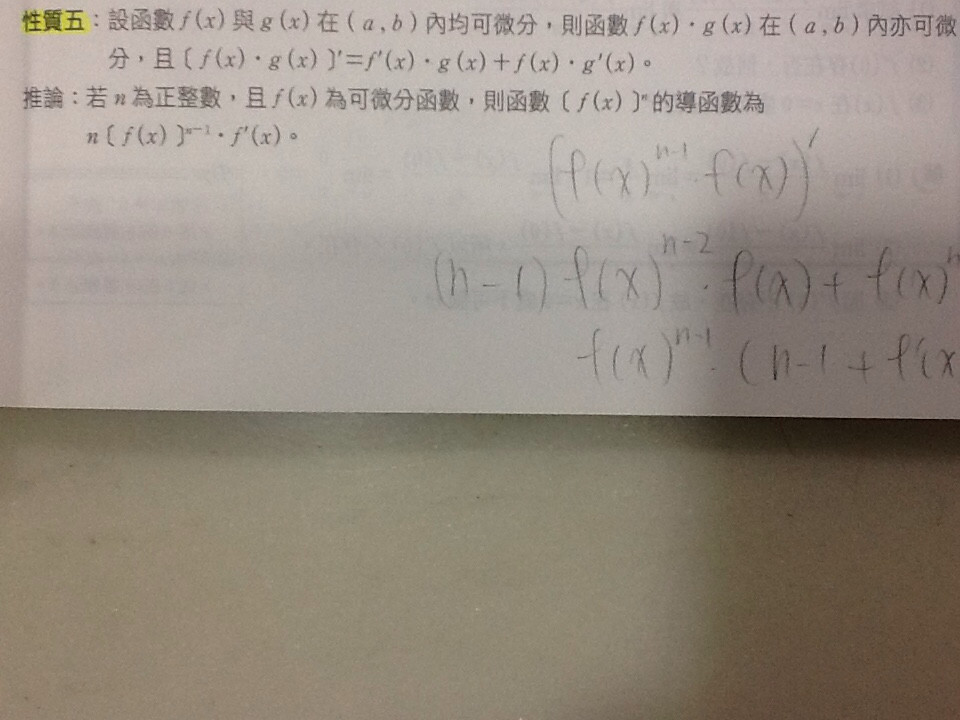 性質五：設函數 f(x) 與 g(x) 在 (a,b) 內均可微分，則函數 f(x)·g(x) 在 (a,b) 內亦可微
分，且〔f(x)·g(x)〕′=f′(x)·g(x)+f(x)·g′(x)。
推論：若 n 為正整數，且 f(x) 為可微分函數，則函數〔f(x)〕ⁿ 的導函數為
n〔f(x)〕ⁿ⁻¹·f′(x)。
(f(x)ⁿ⁻¹·f(x))′
(n-1) f(x)ⁿ⁻²·f(x)+f(x)ⁿ
f(x)ⁿ⁻¹·(n-1+f′(x